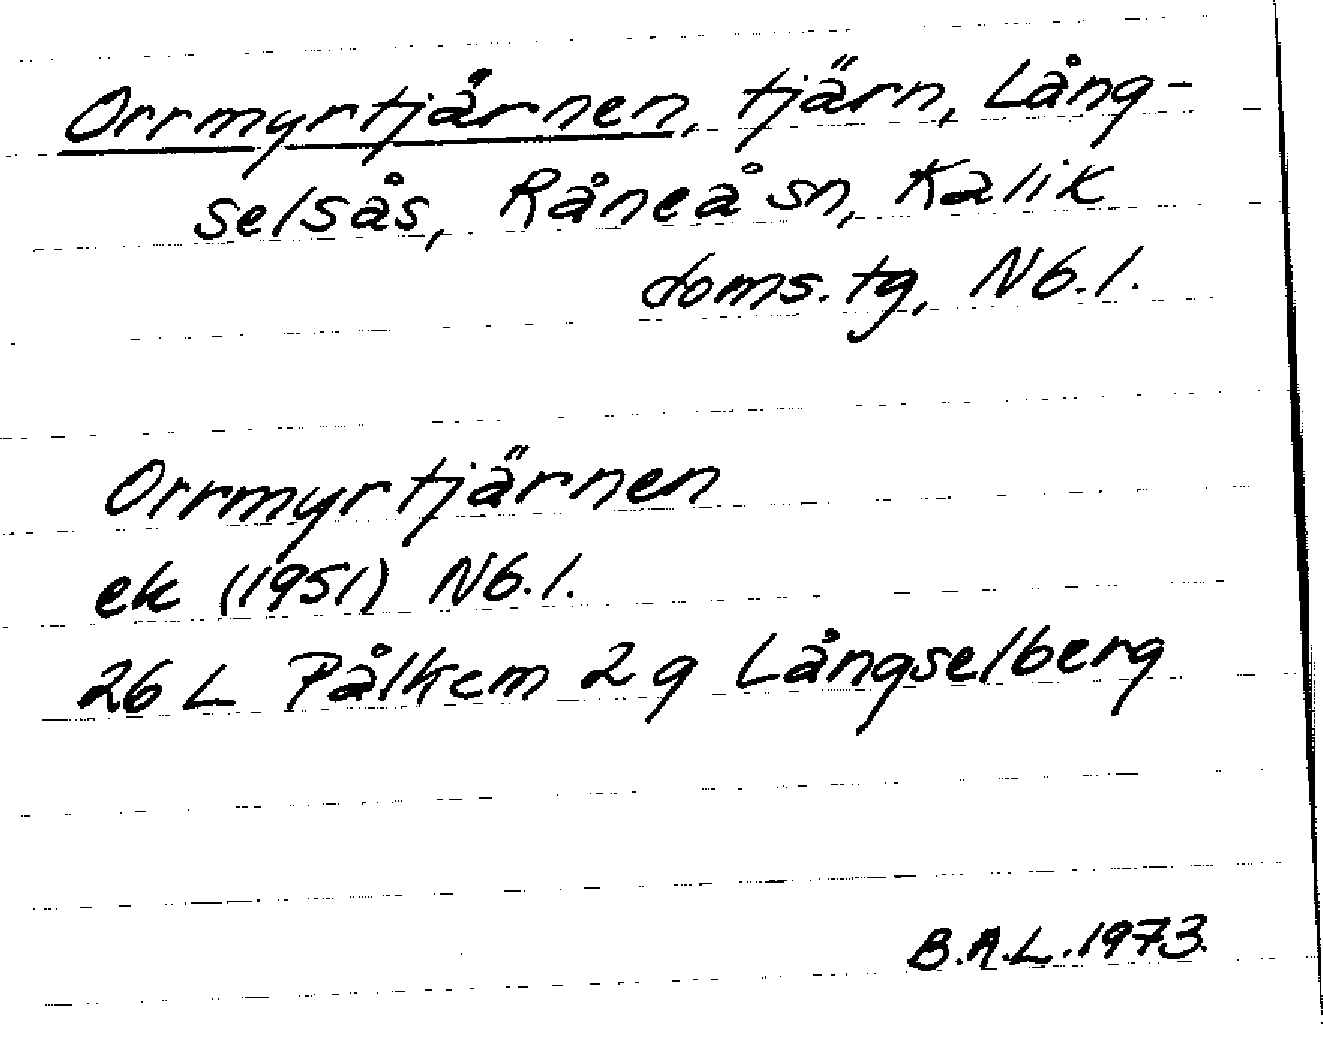 Orrmyrtjärnen, tjärn, Lång-
selsås, Råneå sn, Kalix
doms.tg, Nb.l.
Orrmyrtjärnen
ek (1951) Nb.l.
26 L Pålkem 2 g Långselberg
B.A.L. 1973.